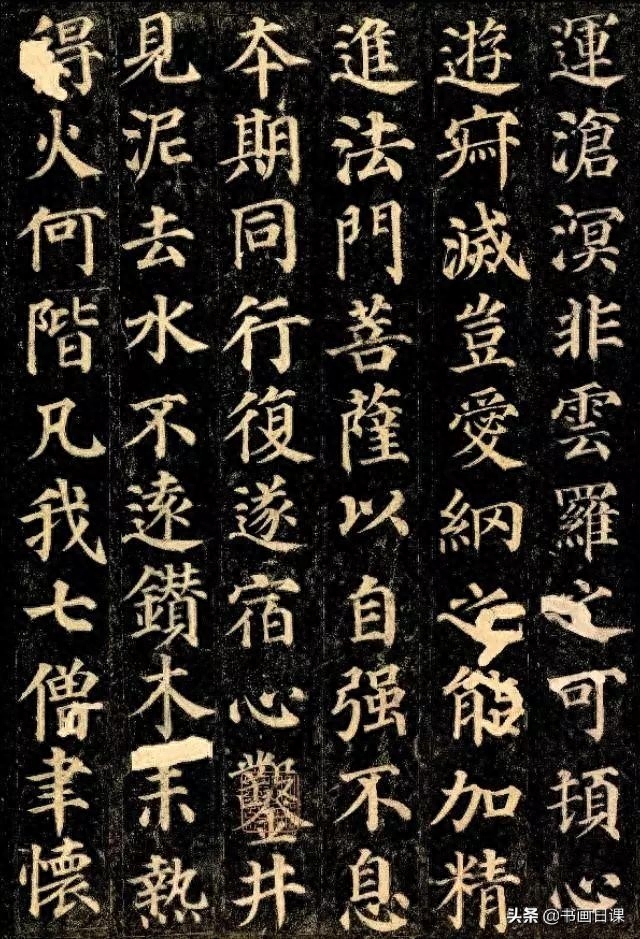 運滄溟非雲羅之可頓心
遊寂滅豈愛網之能加精
進法門菩薩以自强不息
本期同行復遂宿心鑿井
見泥去水不遠鑽木未熱
得火何階凡我七僧聿懷
头条 @书画日课